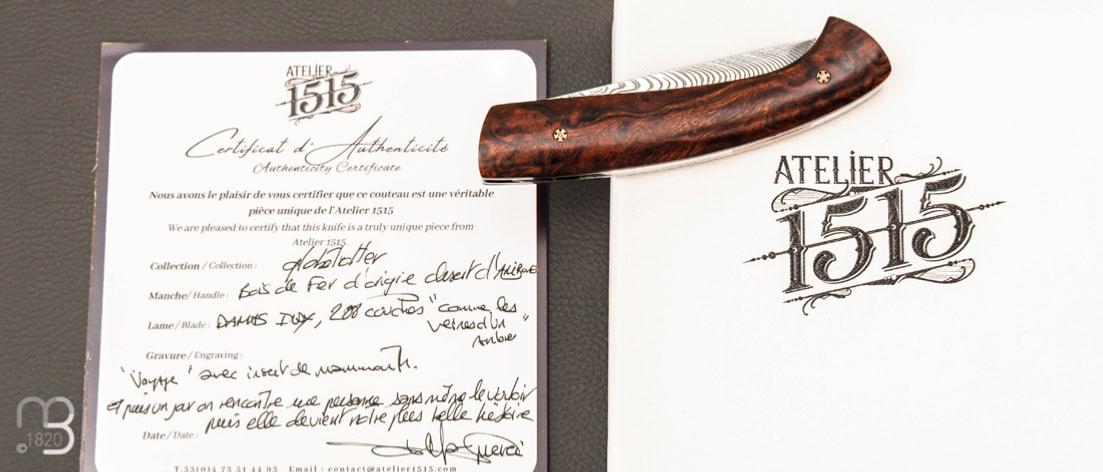 ATELIER
1515
Certificat d'Authenticité
Authenticity Certificate
Nous avons le plaisir de vous certifier que ce couteau est une véritable
pièce unique de l'Atelier 1515
We are pleased to certify that this knife is a truly unique piece from
Atelier 1515.
Collection / Collection : Globetrotter
Manche / Handle : Bois de Fer d'origine desert d'Arizona
Lame / Blade : DAMAS INOX, 200 couches "comme les
veines d'un
Arbre"
Gravure / Engraving :
"Voyage" avec insert de mammouth.
et puis un jour on rencontre une personne sans même le vouloir
puis elle devient notre plus belle histoire
Date / Date :
T.33(0)4 73 51 44 93 Email : contact@atelier1515.com
ATELIER
1515
MB
©1820